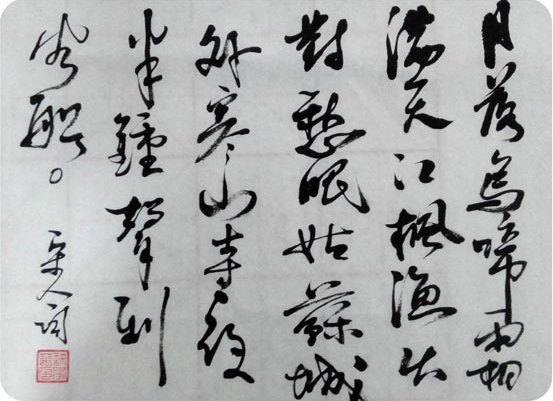 月落烏啼霜
滿天江楓漁火
對愁眠姑蘇城
外寒山寺夜
半鐘聲到
客船。